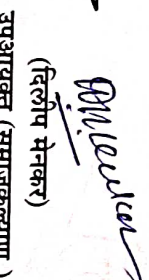 (दिलीप मेनकर)
उपआयुक्त (समाजकल्याण)